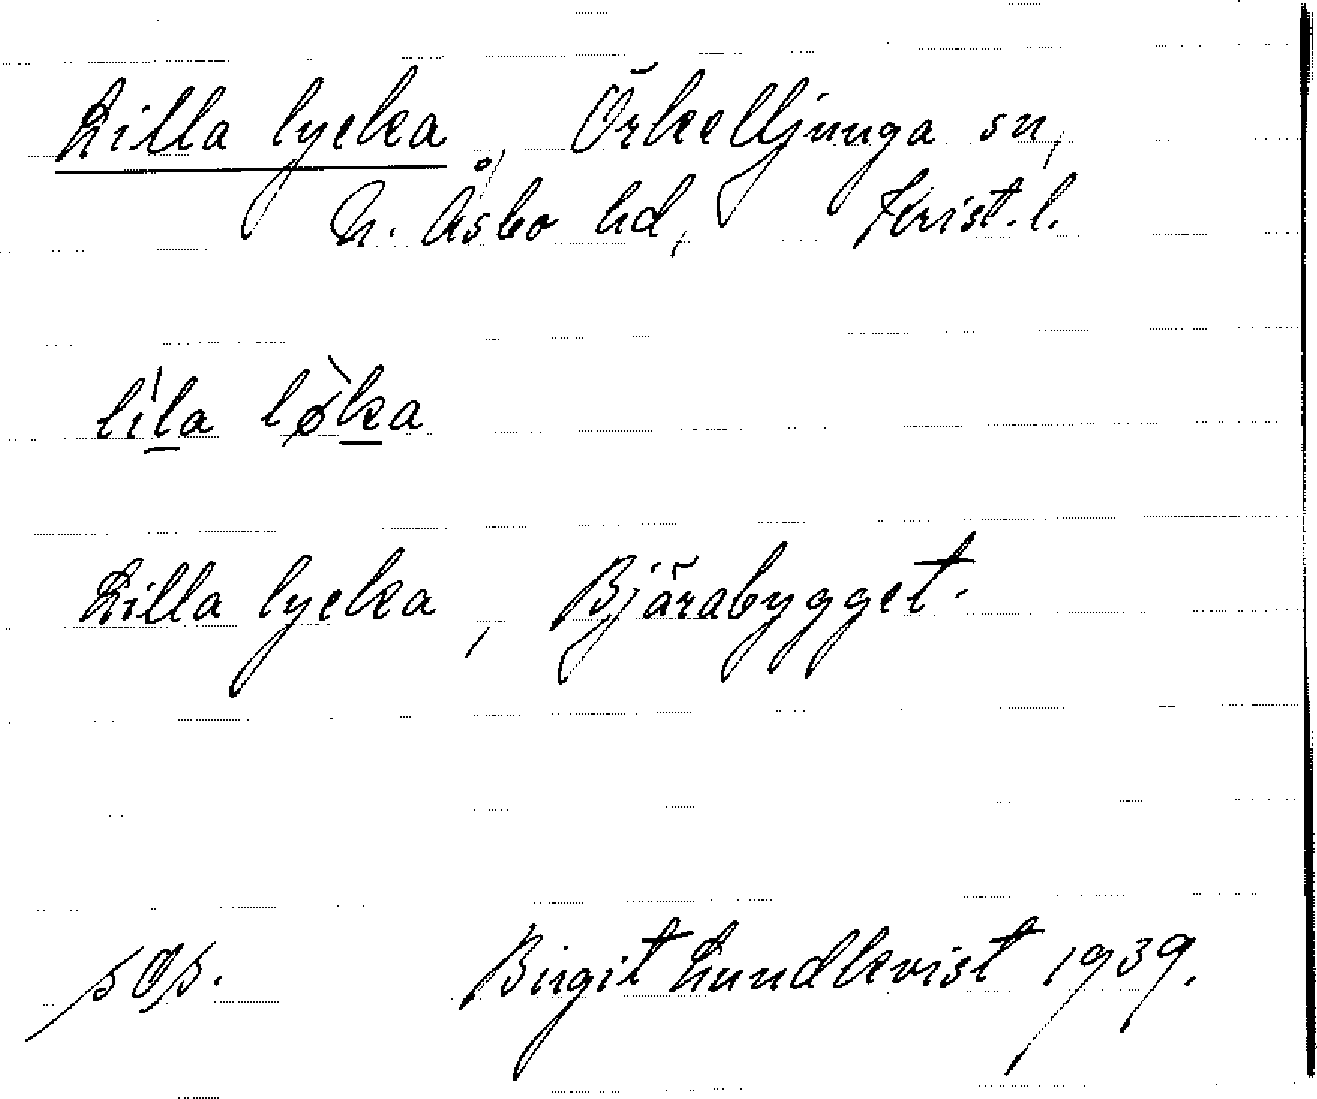 Lilla lycka, Örkelljunga sn,
N. Åsbo hd, Krist. l.
lìla lø̀ka
Lilla lycka, Bjärabygget.
Birgit Lundkvist 1939.